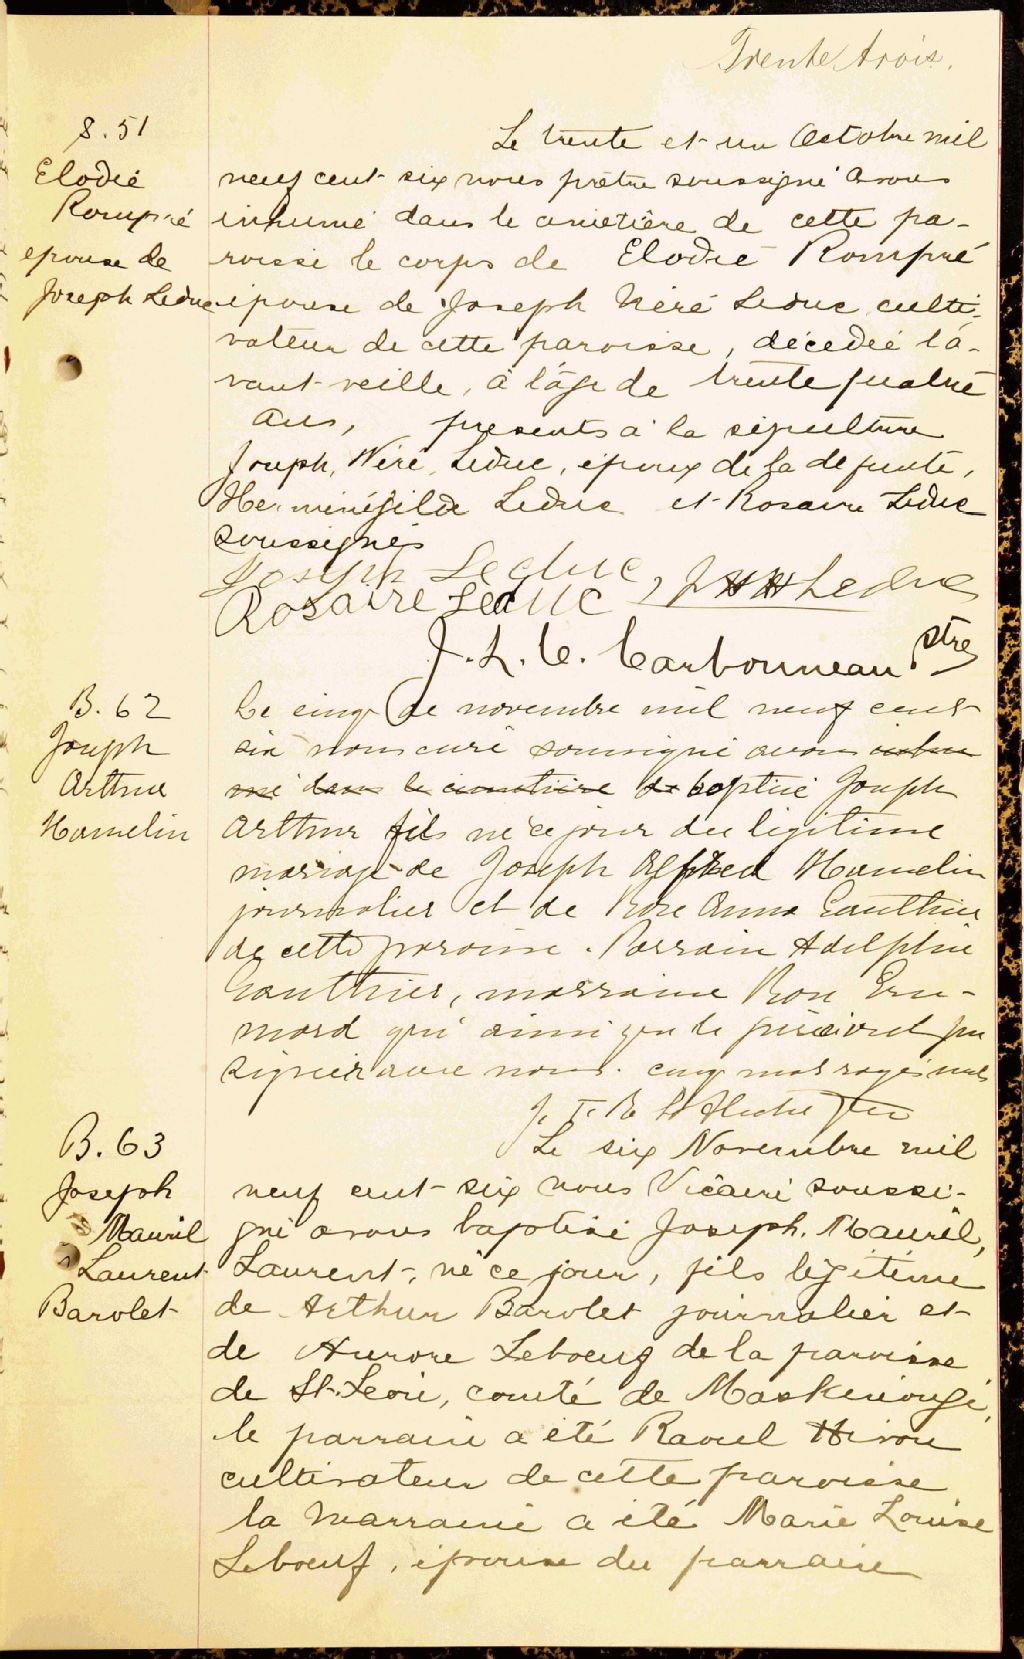 Trente trois.
S. 51
Elodie
Rompré
epouse de
Joseph Leduc
Le trente et un Octobre mil
neuf cent six nous prêtre soussigné avons
inhumé dans le cimetière de cette pa-
roisse le corps de Elodie Rompré
épouse de Joseph Néré Leduc culti-
vateur de cette paroisse, décédée l'a-
vant-veille, à l'âge de trente quatre
ans, présents à la sépulture
Joseph, Néré, Leduc, époux de la defunte,
Herménégilde Leduc et Rosaire Leduc
soussignés
Joseph Leduc, H Leduc
Rosaire Leduc
J. L. C. Carbonneau Ptre
B. 62
Joseph
Arthur
Hamelin
Le cinq de novembre mil neuf cent
six nous curé soussigné avons inhu
mé dans le cimetière de baptisé Joseph
Arthur fils né ce jour du légitime
mariage de Joseph Alfred Hamelin
journalier et de Rose Anna Gauthier
de cette paroisse. Parrain Adelphie
Gauthier, marraine Rose
qui ainsi que le père
signer avec nous. cinq mots rayés nuls
B. 63
Joseph
Mauril
Laurent
Barolet
Le six Novembre mil
neuf cent six nous Vicaire soussi-
gné avons baptisé Joseph, Mauril,
Laurent, né ce jour, fils légitime
de Arthur Barolet journalier et
de Aurore Leboeuf de la paroisse
de St. Léon, comté de Maskinongé,
le parrain a été Raoul Hivon
cultivateur de cette paroisse
la marraine a été Marie Louise
Leboeuf, épouse du parrain